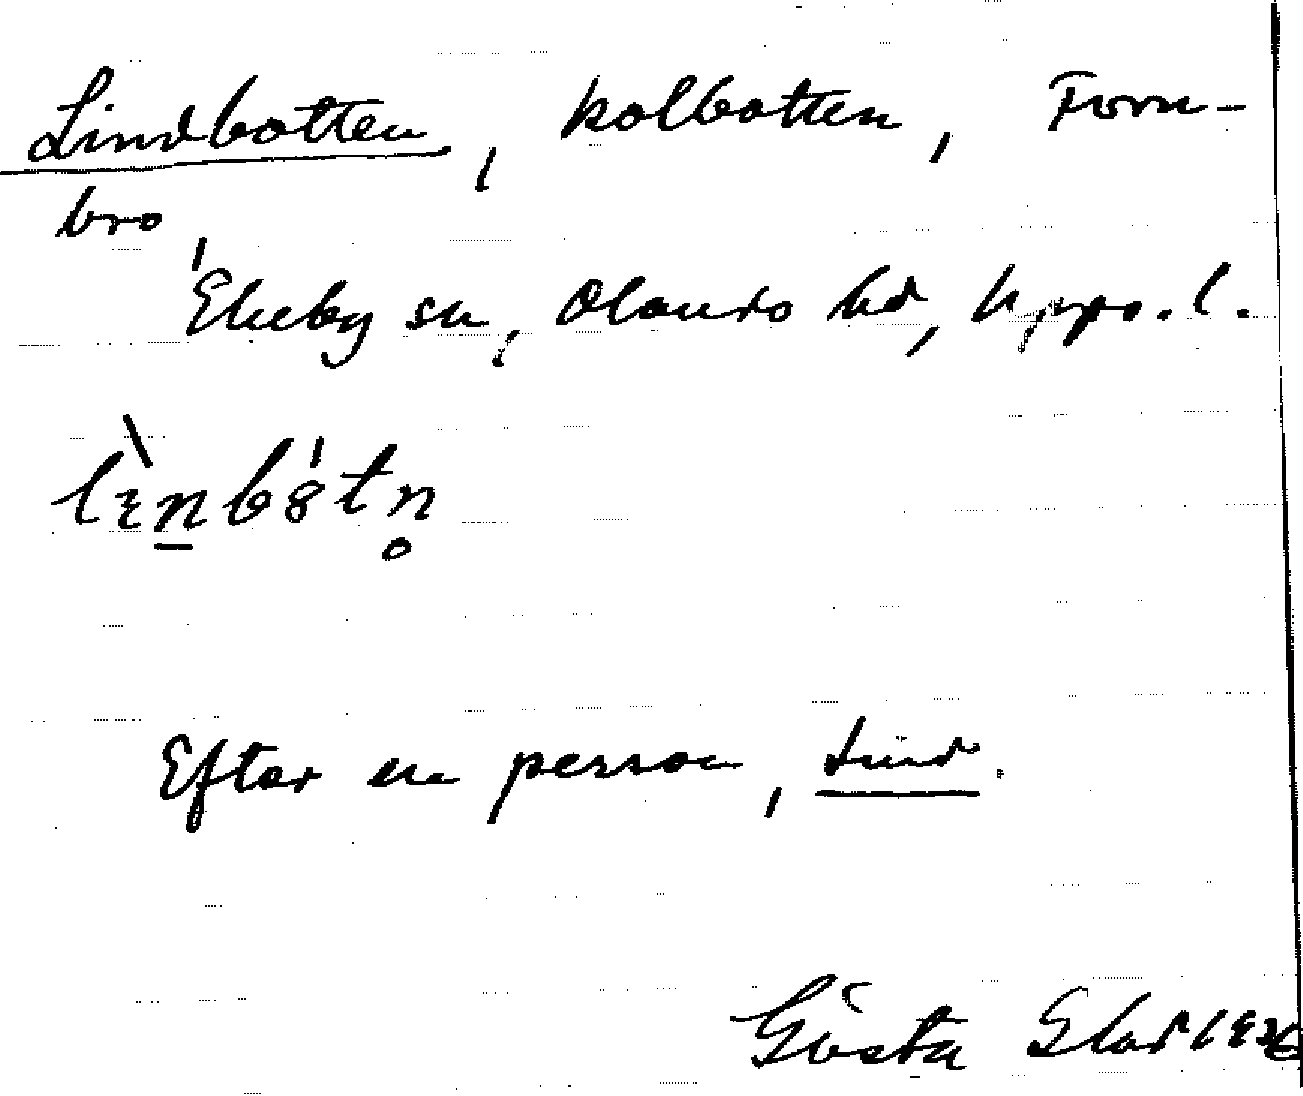 Lindbotten, kolbotten, Forn-
bro,
Ekeby sn, Olands hd, Upps. l.
Efter en person, Lind.
Gösta